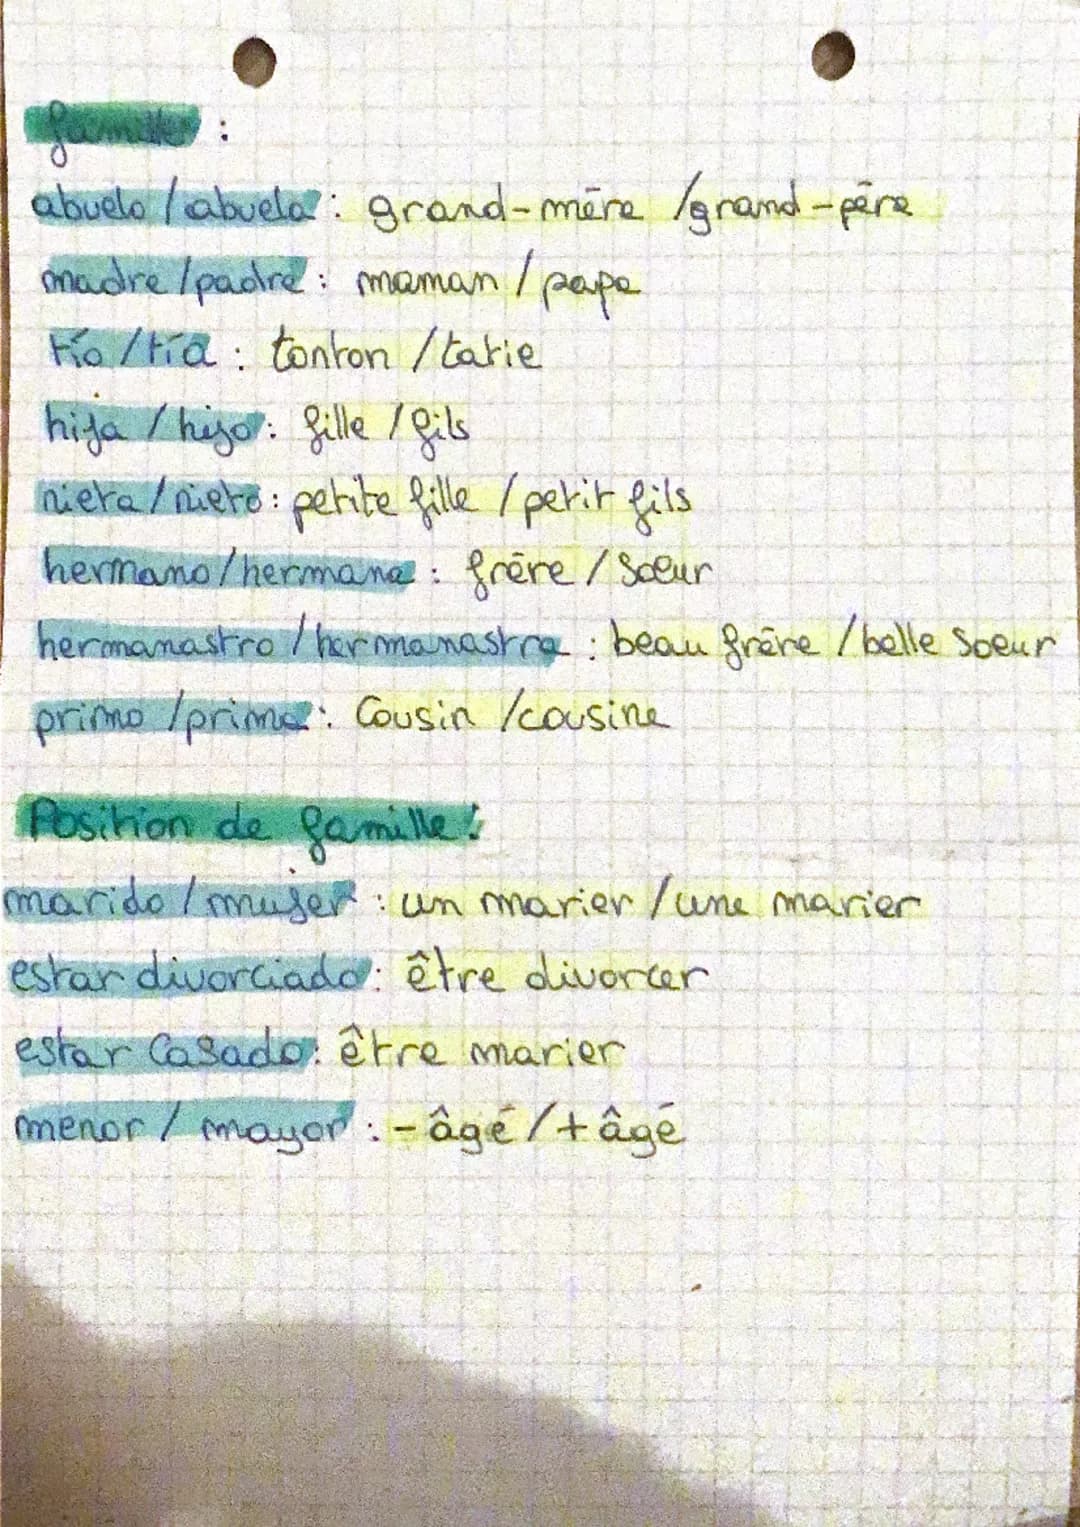 famille :
abuelo / abuela : grand-mère / grand-père
madre / padre : maman / papa
tío / tía : tonton / tatie
hija / hijo : fille / fils
nieta / nieto : petite fille / petit fils
hermano / hermana : frère / soeur
hermanastro / hermanastra : beau frère / belle soeur
primo / prima : Cousin / cousine
Position de famille :
marido / mujer : un marier / une marier
estar divorciado : être divorcer
estar casado : être marier
menor / mayor : - âgé / + âgé